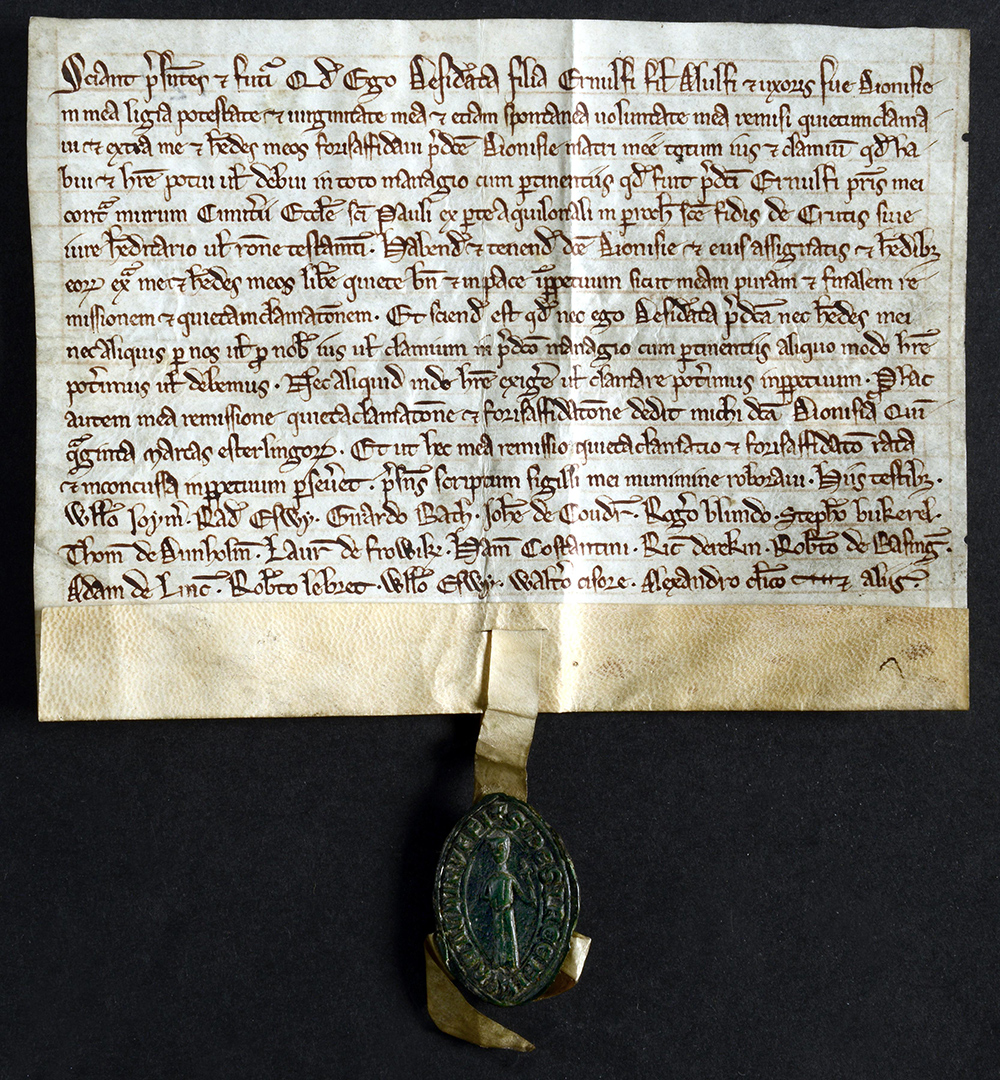 Sciant p̃sentes ⁊ futĩ Qd̃ Ego Desid̃ata filia Ernulfi fil̃ Alulfi ⁊ uxoris sue Dionisie
in mea ligia potestate ⁊ uirginitate mea ⁊ etiam spontanea uoluntate mea remisi quietumclama
ui ⁊ extra me ⁊ h̃edes meos forisaffidaui p̃dc̃e Dionisie matri mee totum ius ⁊ clamiũ qd̃ ha
bui ⁊ hr̃e potui ul̃ debui in toto managio cum ꝑtinentiis qd̃ fuit p̃dc̃i Ernulfi pr̃is mei
cont̃ murum Cimit̃ii Eccl̃e sc̃i Pauli ex parte aquilonali in paroch̃ sc̃e fidis de Crutis siue
iure h̃editario ul̃ rõne testam̃ti . Habend̃ ⁊ tenend̃ dc̃e Dionisie ⁊ eius assignatis ⁊ h̃edibꝫ
eoꝝ ex̃ me ⁊ h̃edes meos lib̃e quiete bñ ⁊ in pace ĩꝑpetuum sicut meam puram ⁊ finalem re
missionem ⁊ quietamclamatõnem . Et sciend̃ est qd̃ nec ego Desid̃ata p̃dc̃a nec h̃edes mei
nec aliquis ꝑ nos ul̃ ꝓ nob̃ ius ul̃ clamium in p̃dc̃o managio cum ꝑtinentiis aliquo modo hr̃e
pot̃imus ul̃ debemus . Nec aliquid inde hr̃e exig̃e ul̃ clamare pot̃imus inꝑpetuum . P̃ hac
autem mea remissione quietaclamatõne ⁊ forisaffidatõne dedit michi dc̃a Dionisia Quĩ
q̃ginta marcas esterlingoꝝ . Et ut hec mea remissio quietaclamatio ⁊ forisaffidatõ rata
⁊ inconcussa inꝑpetuum ꝑseũet . p̃sñs scriptum sigilli mei munimine roboraui . Hiis testibꝫ .
Will̃o Ioym̃ . Rad̃ Eswy . Girardo Bach̃ . Ioh̃e de Coudr̃ . Rog̃o blundo . Steph̃o bukerel .
Thom̃ de Dunholm̃ . Laur̃ de frowik̃ . Ham̃ Costantini . Ric̃ derekin . Rob̃to de Basing̃ .
Adam de Linc̃ . Rob̃to lebret . Will̃o Eswy . walt̃o cisore . Alexandro cl̃ico ⁊ aliis .